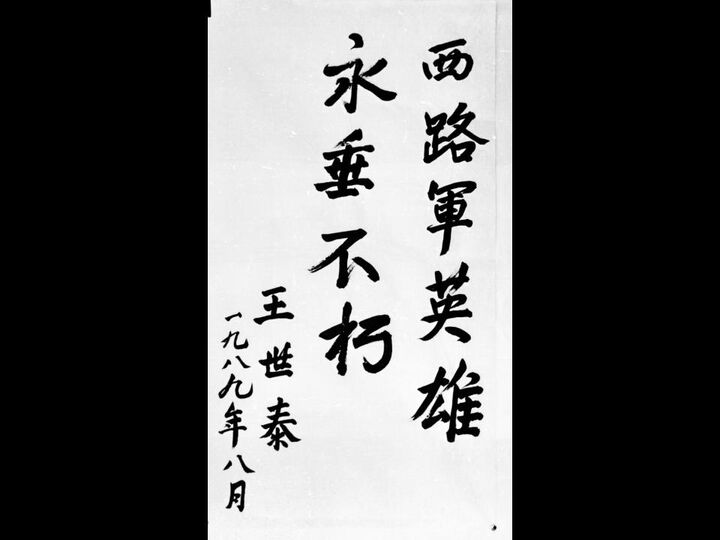 西路軍英雄
永垂不朽
王世泰
一九八九年八月